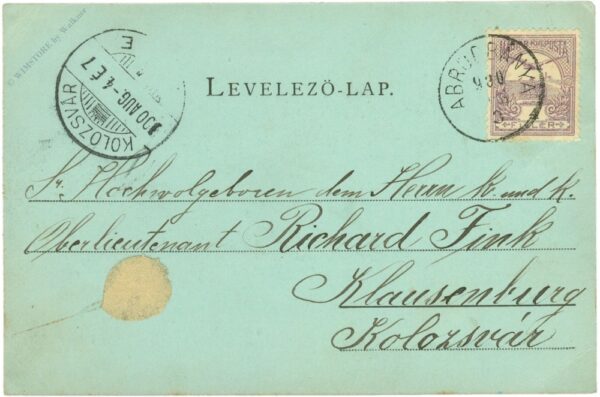 © WIMSTORE by Walkner
KOLOZSVÁR
900 AUG -4 E 7
E
LEVELEZÖ-LAP.
ABRUDBÁNYA
900
MAGYAR KIR. POSTA
FILLÉR
Sr. Hochwolgeboren dem Herrn k. und k.
Oberlieutenant Richard Fink
Klausenburg
Kolozsvár